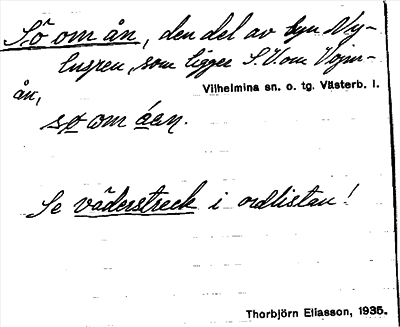 Sö om ån, den del av byn Ny-
luspen, som ligger S.V. om Vojm-
ån,
Vilhelmina sn. o. tg. Västerb. l.
sø om åan.
Se väderstreck i ordlistan!
Thorbjörn Eliasson, 1935.